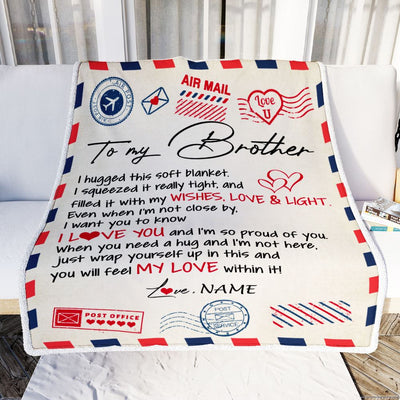 AIR POST
AIR MAIL
Love
U
To my Brother
I hugged this soft blanket.
I squeezed it really tight, and
filled it with my WISHES, LOVE & LIGHT.
Even when I'm not close by,
I want you to know
I L❤VE YOU and I'm so proud of you.
When you need a hug and I'm not here,
just wrap yourself up in this and
you will feel MY LOVE within it!
Love, NAME
POST OFFICE
POST
SERVICE